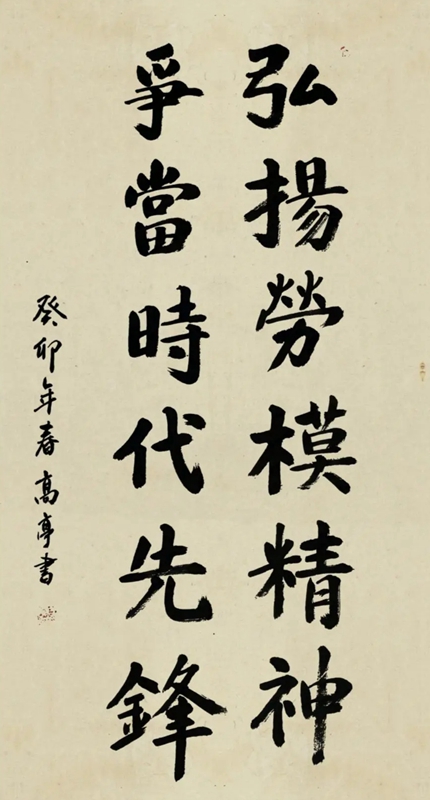 弘揚勞模精神
爭當時代先鋒
癸卯年春高亭書